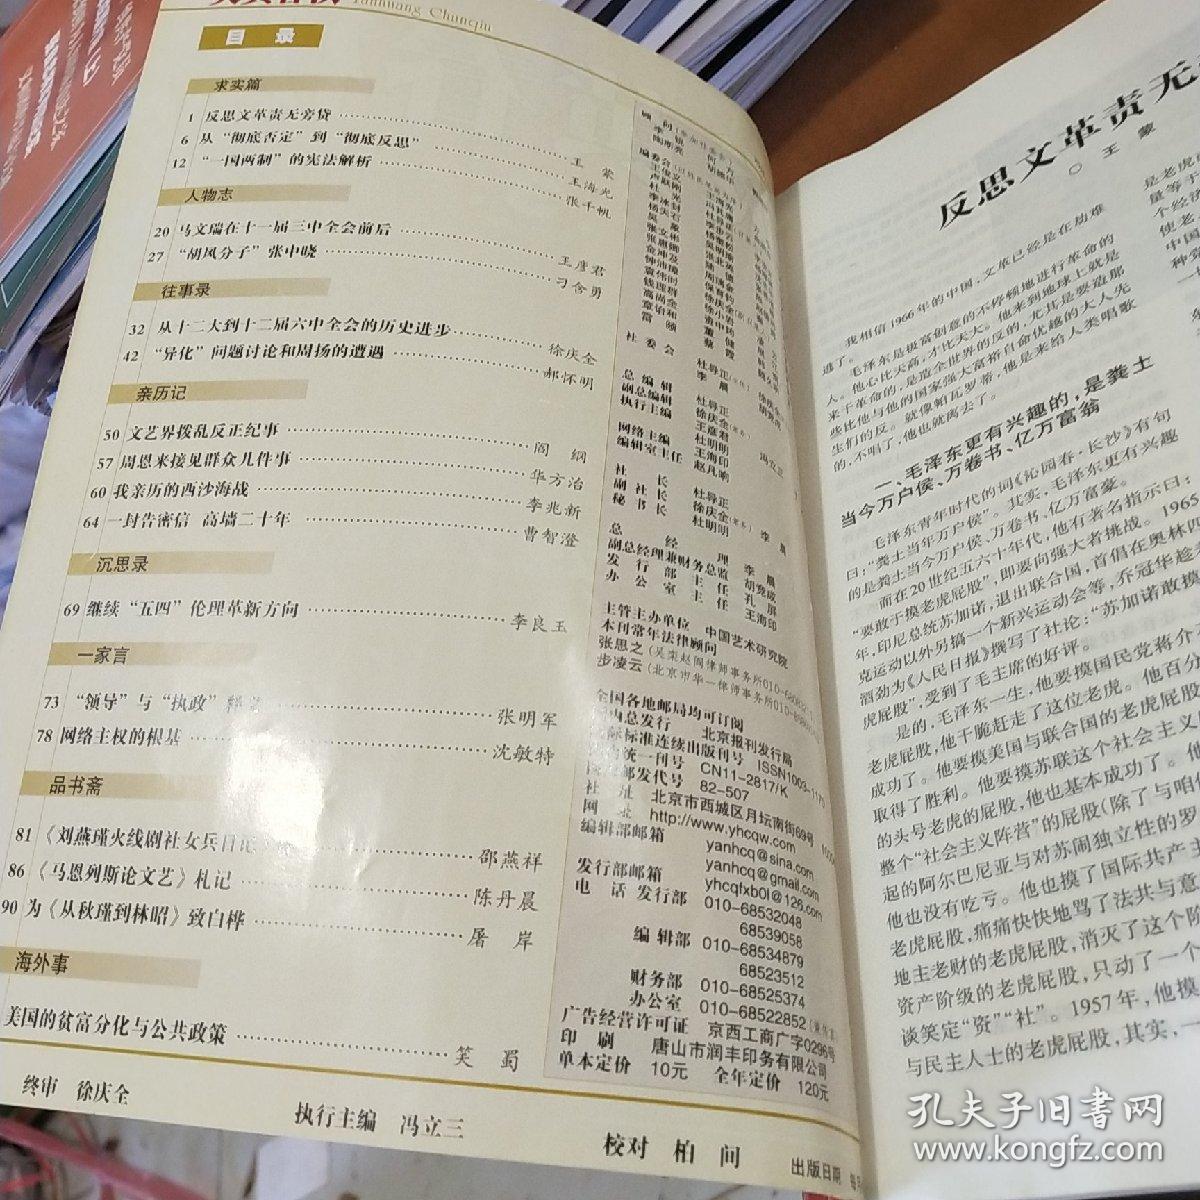 Yanhuang Chunqiu
目 录
求实篇
1 反思文革责无旁贷
王 蒙
6 从“彻底否定”到“彻底反思”
王海光
12 “一国两制”的宪法解析
张千帆
人物志
20 马文瑞在十一届三中全会前后
王彦君
27 “胡风分子”张中晓
刁含勇
往事录
32 从十二大到十二届六中全会的历史进步
徐庆全
42 “异化”问题讨论和周扬的遭遇
郝怀明
亲历记
50 文艺界拨乱反正纪事
阎 纲
57 周恩来接见群众几件事
华方治
60 我亲历的西沙海战
李兆新
64 一封告密信 高墙二十年
曹智澄
沉思录
69 继续“五四”伦理革新方向
李良玉
一家言
73 “领导”与“执政”
张明军
78 网络主权的根基
沈敏特
品书斋
81 《刘燕瑾火线剧社女兵日记
邵燕祥
86 《马恩列斯论文艺》札记
陈丹晨
90 为《从秋瑾到林昭》致白桦
屠 岸
海外事
美国的贫富分化与公共政策
笑 蜀
终审 徐庆全
执行主编 冯立三
校对 柏 间
出版日期
顾 问
编委会
社委会 杜导正
李 晨
总编辑 杜导正
副总编辑 徐庆全
王彦君
执行主编
冯立三
网络主编 杜明明
编辑室主任 王海印
赵凡响
社 长 杜导正
副社长 徐庆全 李 晨
秘书长 杜明明
总 经 理 李 晨
副总经理兼财务总监 胡竞成
发行部主任 孔 屏
办公室主任 王海印
主管主办单位 中国艺术研究院
本刊常年法律顾问
张思之(吴栾赵阎律师事务所010-
步凌云(北京市华一律师事务所
全国各地邮局均可订阅
内总发行 北京报刊发行局
标准连续出版刊号 ISSN1003-1170
统一刊号 CN11-2817/K
邮发代号 82-507
社 址 北京市西城区月坛南街69号
网 址 http://www.yhcqw.com
编辑部邮箱 yanhcq@sina.com
yanhcq@gmail.com
发行部邮箱 yhcqfxb01@126.com
电 话 发行部 010-68532048
68539058
编辑部 010-68534879
68523512
财务部 010-68525374
办公室 010-68522852
广告经营许可证 京西工商广字0296号
印 刷 唐山市润丰印务有限公司
单本定价 10元 全年定价 120元
反思文革责无
○ 王 蒙
我相信1966年的中国,文革已经是在劫难
逃了。毛泽东是极富创意的不停顿地进行革命的
人。他心比天高,才比天大。他来到地球上就是
来干革命的,是造全世界的反的,尤其是要造那
些比他与他的国家强大富裕自命优越的大人先
生们的反。就像帕瓦罗蒂,他是来给人类唱歌
的,不唱了,他也就离去了。
一、毛泽东更有兴趣的,是粪土
当今万户侯、万卷书、亿万富翁
毛泽东青年时代的词《沁园春·长沙》有句
曰:“粪土当年万户侯”。其实,毛泽东更有兴趣
的是粪土当今万户侯、万卷书、亿万富豪。
而在20世纪五六十年代,他有著名指示曰:
“要敢于摸老虎屁股”,即要向强大者挑战。1965
年,印尼总统苏加诺,退出联合国,首倡在奥林匹
克运动以外另搞一个新兴运动会等,乔冠华趁
酒劲为《人民日报》撰写了社论:“苏加诺敢摸
虎屁股”,受到了毛主席的好评。
是的,毛泽东一生,他要摸国民党蒋介
老虎屁股,他干脆赶走了这位老虎。他百分
成功了。他要摸美国与联合国的老虎屁股
取得了胜利。他要摸苏联这个社会主义
的头号老虎的屁股,他也基本成功了。他
整个“社会主义阵营”的屁股(除了与咱们
起的阿尔巴尼亚与对苏闹独立性的罗
他也没有吃亏。他也摸了国际共产主
老虎屁股,痛痛快快地骂了法共与意
地主老财的老虎屁股,消灭了这个阶
资产阶级的老虎屁股,只动了一个
谈笑定“资”“社”。1957年,他摸
与民主人士的老虎屁股,其实,一
是老虎
量等于
个经济
使老
中国
种党
孔夫子旧书网
www.kongfz.com